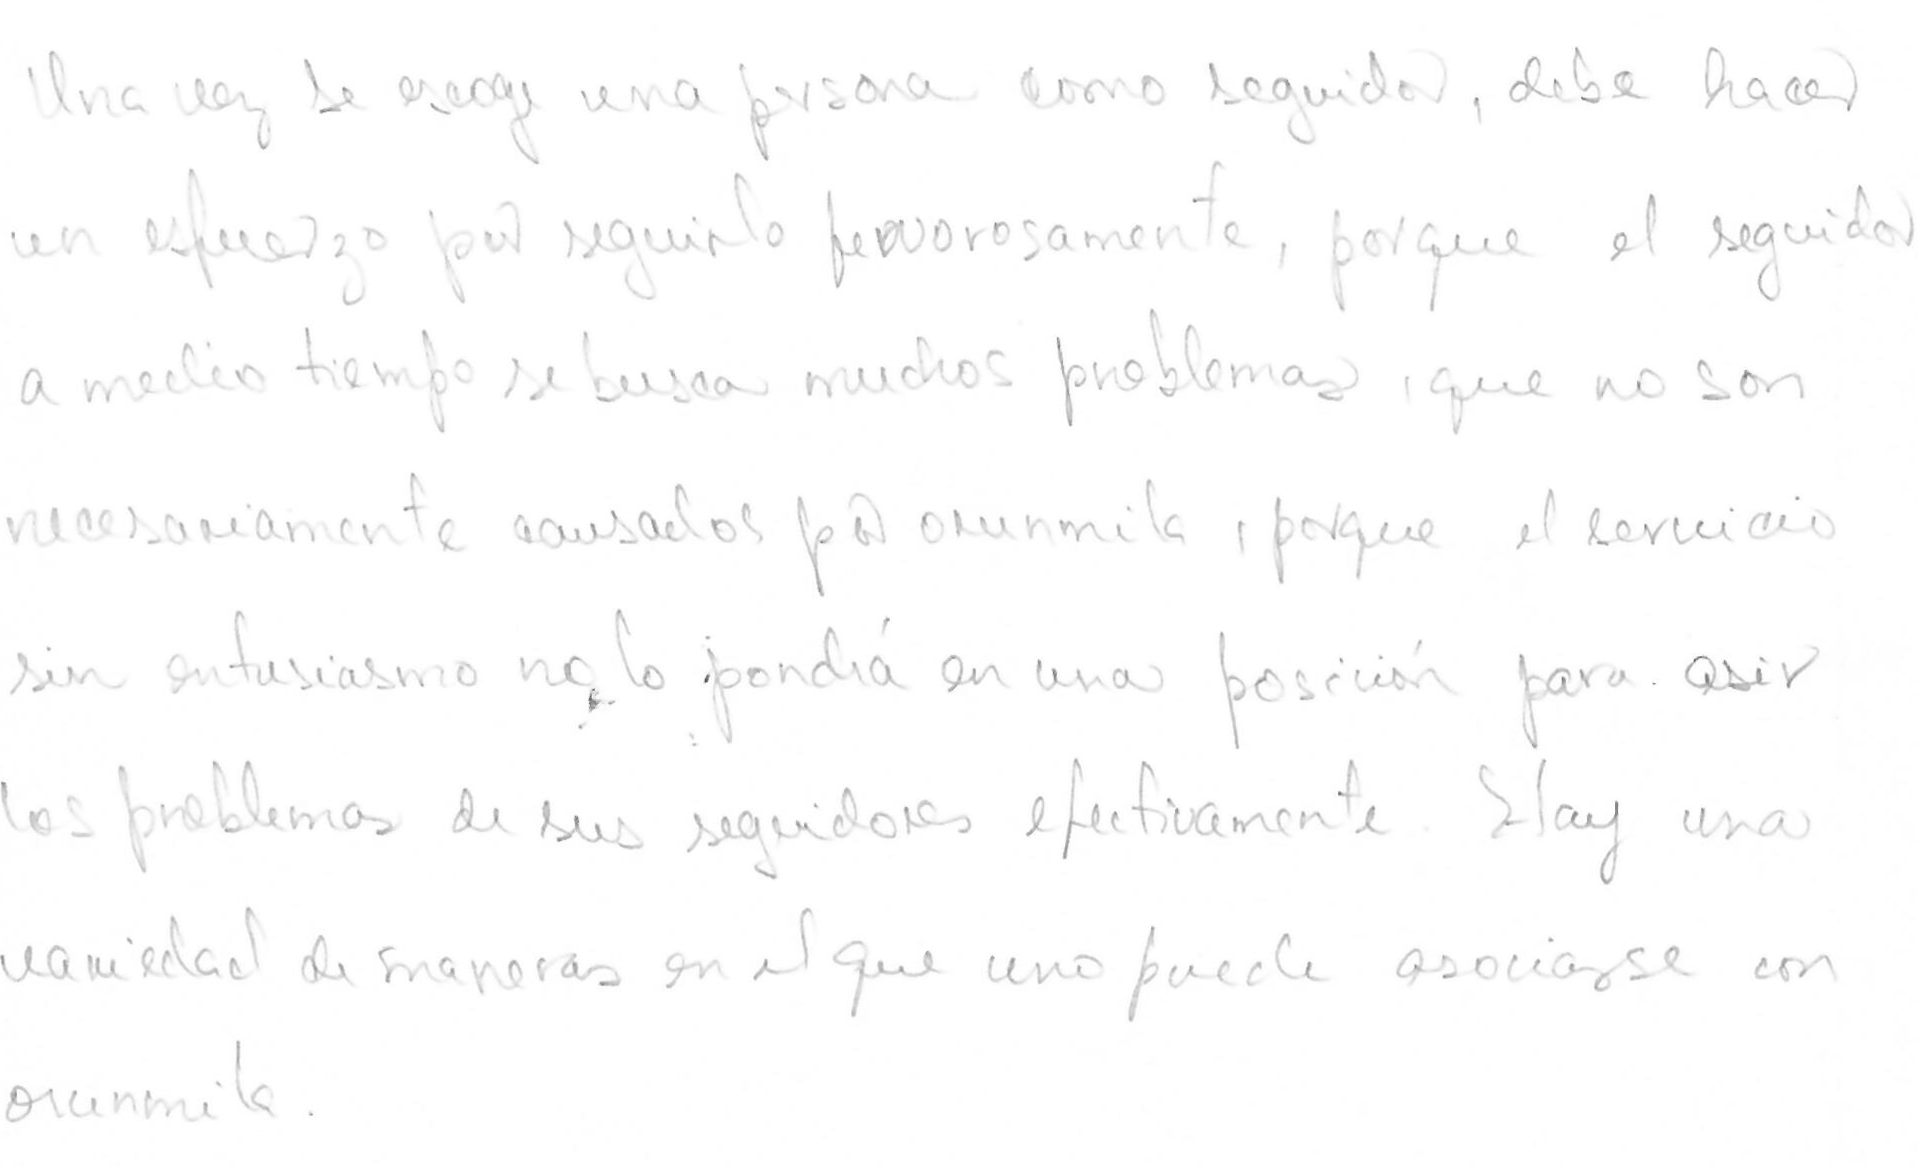 Una vez se escoge una persona como seguidor, debe hacer
un esfuerzo por seguirlo fervorosamente, porque el seguidor
a medio tiempo se busca muchos problemas, que no son
necesariamente causados por orunmila, porque el servicio
sin entusiasmo no lo pondrá en una posición para asir
los problemas de sus seguidores efectivamente. Hay una
variedad de maneras en el que uno puede asociarse con
orunmila.